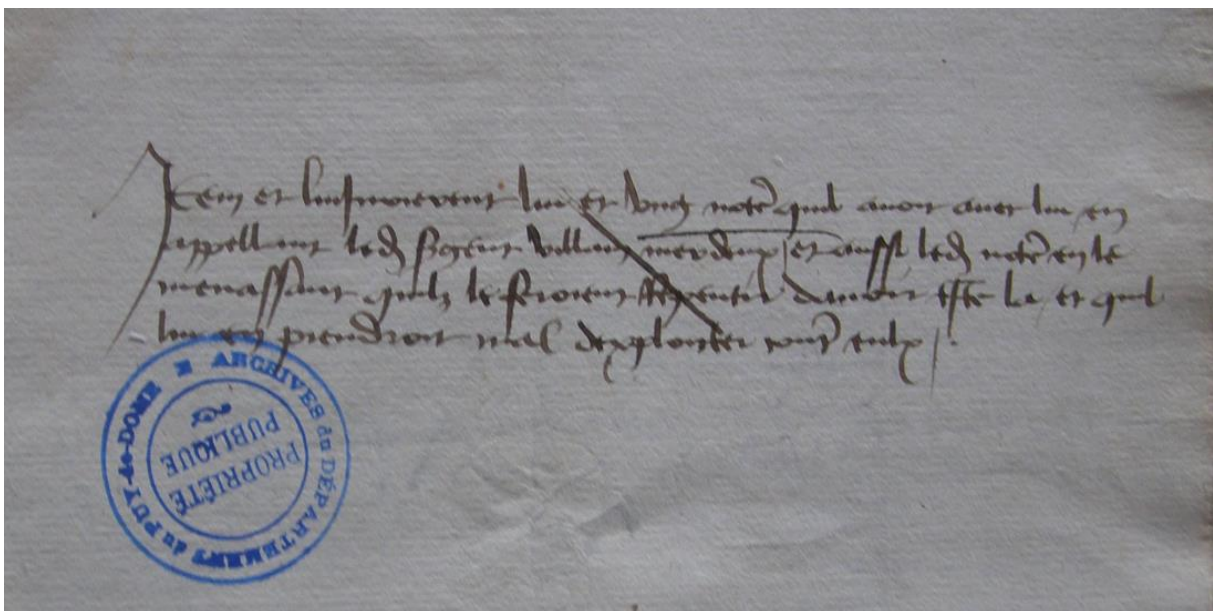 Item et luy injurierent luy et ung notẽ quil avoit avec luy en
appellant led sergent villain merdeux et aussi led notẽ en le
menassant quilz le feroient repentir davoir este la et quil
luy en prendroit mal dexploicter contr eulx
ARCHIVES du DÉPARTEMENT du PUY-de-DOME
PROPRIÉTÉ
PUBLIQUE